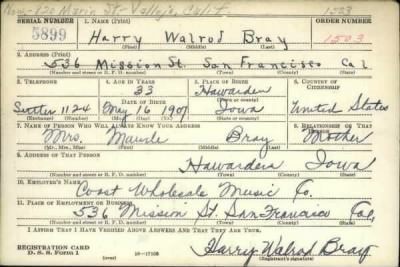 Now-120 Marin St- Vallejo, Calif. 1523
SERIAL NUMBER 1. NAME (Print) ORDER NUMBER
5899 Harry Walrod Bray 1503
(First) (Middle) (Last)
2. ADDRESS (Print)
536 Mission St. San Francisco Cal
(Number and street or R. F. D. number) (Town) (County) (State)
3. TELEPHONE 4. AGE IN YEARS 5. PLACE OF BIRTH 6. COUNTRY OF CITIZENSHIP
33 Hawarden
Sutter 1124 DATE OF BIRTH May 16 1907 Iowa United States
(Exchange) (Number) (Mo.) (Day) (Yr.) (State or country)
7. NAME OF PERSON WHO WILL ALWAYS KNOW YOUR ADDRESS 8. RELATIONSHIP OF THAT PERSON
Mrs. Maude Bray Mother
(Mr., Mrs., Miss) (First) (Middle) (Last)
9. ADDRESS OF THAT PERSON
Hawarden Iowa
(Number and street or R. F. D. number) (Town) (County) (State)
10. EMPLOYER'S NAME
Coast Wholesale Music Co.
11. PLACE OF EMPLOYMENT OR BUSINESS
536 Mission St. San Francisco Cal,
(Number and street or R. F. D. number) (Town) (County) (State)
I AFFIRM THAT I HAVE VERIFIED ABOVE ANSWERS AND THAT THEY ARE TRUE.
REGISTRATION CARD
D. S. S. Form 1 16-17105 Harry Walrod Bray
(Registrant's signature)